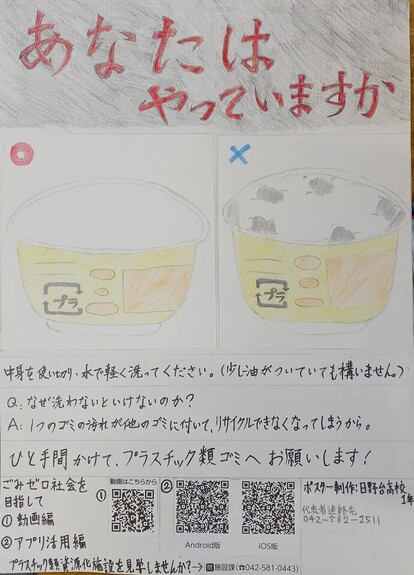 あなたは
やっていますか
プラ
プラ
中身を使い切り、水で軽く洗ってください。(少し油がついていても構いません。)
Q: なぜ洗わないといけないのか?
A: 1つのゴミの汚れが他のゴミに付いて、リサイクルできなくなってしまうから。
ひと手間かけて、プラスチック類ゴミへ お願いします!
ごみゼロ社会を
目指して
① 動画編
② アプリ活用編
①
動画はこちらから
②
Android版
iOS版
ポスター制作:日野台高校
1年
代表者連絡先
042-582-2511
プラスチック類資源化施設を見学しませんか?→
施設課(☎042-581-0443)